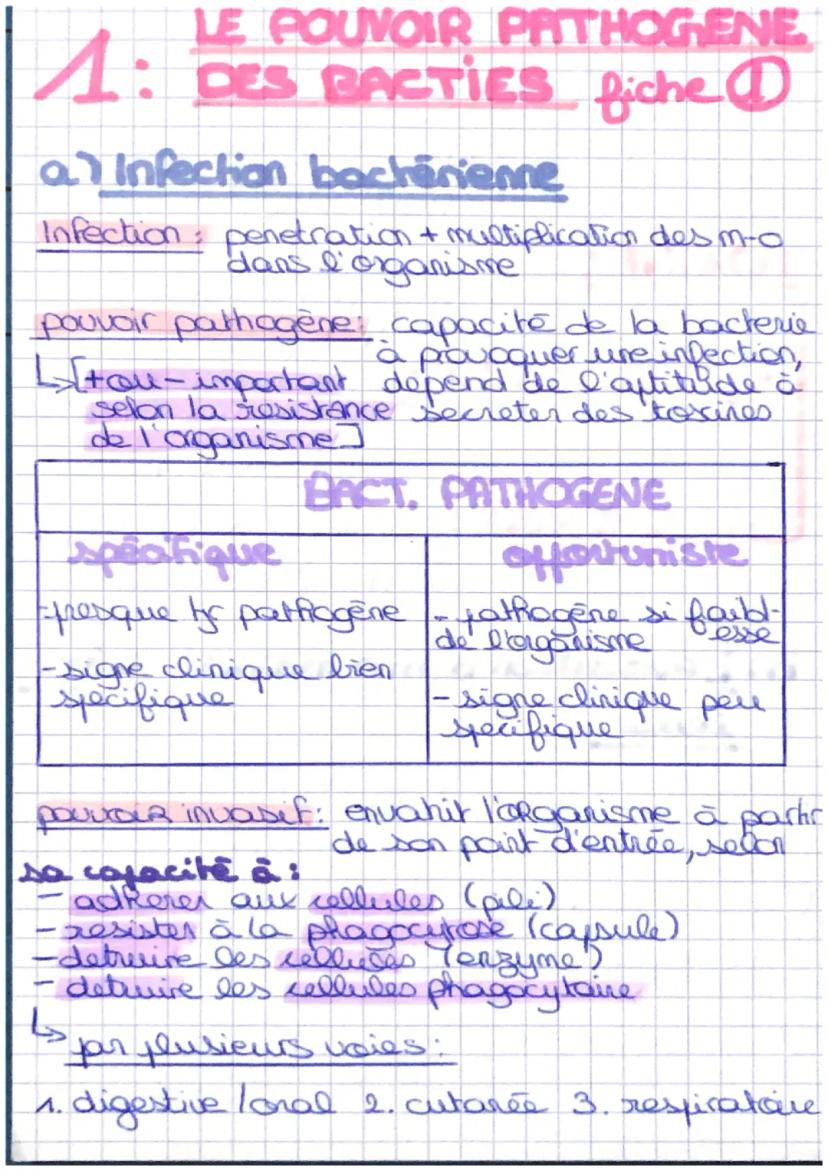 1: LE POUVOIR PATHOGENE
DES BACTIES fiche ①
a) Infection bactérienne
Infection : penetration + multiplication des m-o
dans l'organisme
pouvoir pathogène : capacité de la bacterie
à provoquer une infection,
↳ [+ ou - important depend de l'aptitude à
selon la resistance secreter des toxines
de l'organisme]
BACT. PATHOGENE
spécifique opportuniste
- presque tjr pathogène
- signe clinique bien
spécifique
- pathogène si faibl-
esse
de l'organisme
- signe clinique peu
specifique
pouvoir invasif : envahit l'organisme à partir
de son point d'entrée, selon
sa capacité à :
- adherer aux cellules (pili)
- resister à la phagocytose (capsule)
- detruire les cellules (enzyme)
- detruire les cellules phagocytaire
↳ par plusieurs voies :
1. digestive / oral 2. cutanée 3. respiratoire